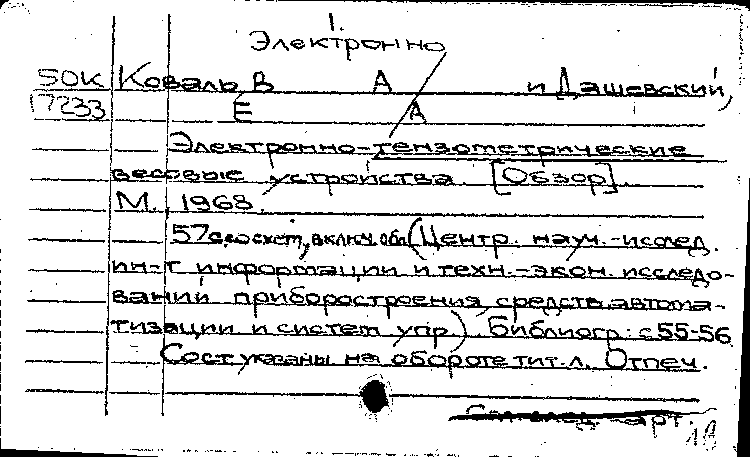 1.
Электронно
50К Коваль В А и Дашевский,
17233 Е А
Электронно-тензометрические
весовые устройства. [Обзор].
М., 1968.
57с. со схем., включ. обл. (Центр. науч.-исслед.
ин-т информации и техн.-экон. исследо-
ваний приборостроения средств автома-
тизации и систем упр.). Библиогр.: с 55-56
Сост указаны на обороте тит. л. Отпеч.
арт.
18